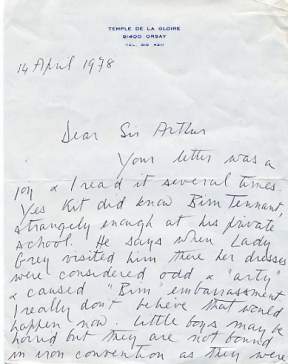 TEMPLE DE LA GLOIRE
91400 ORSAY
14 April 1978
Dear Sir Arthur
Your letter was a
joy & I read it several times.
Yes Kit did know Bim Tennant,
strangely enough at his private
school. He says when Lady
Grey visited him there her dresses
were considered odd & "arty"
& caused "Bim" embarrassment
I really don't believe that would
happen now. Little boys may be
horrid but they are not bound
in iron convention as they were